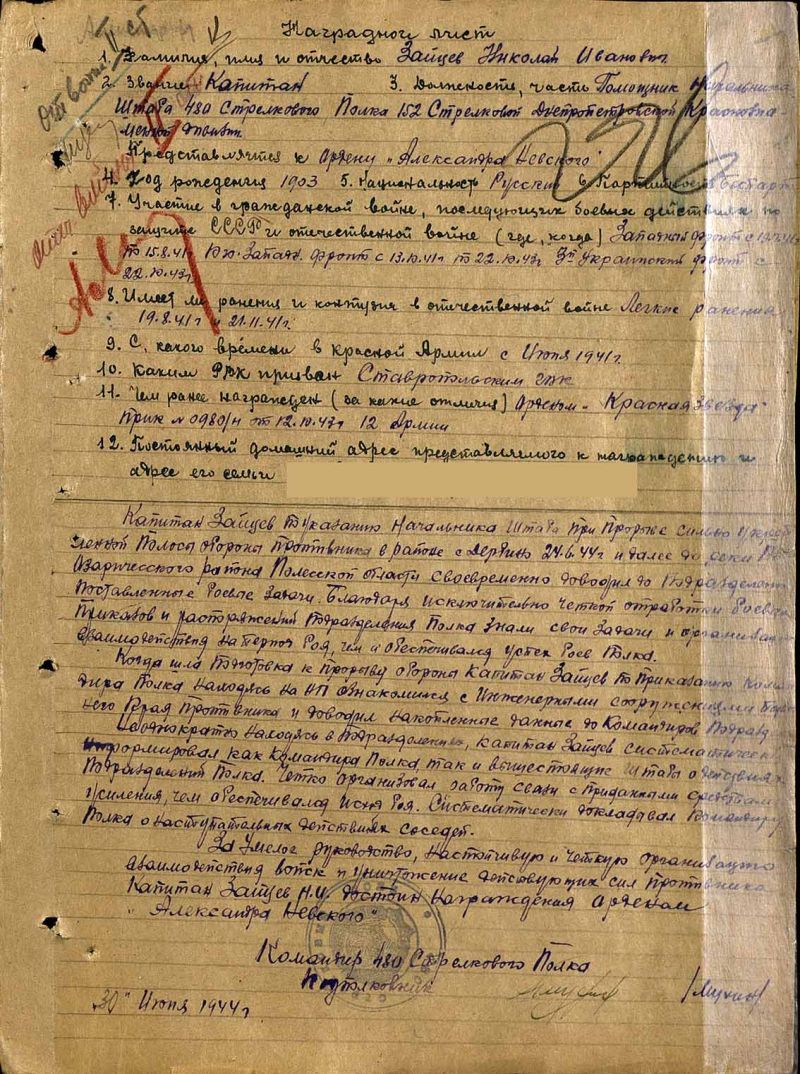 Наградной лист
1. Фамилия, имя и отчество Зайцев Николай Иванович
2. Звание Капитан 3. Должность, часть Помощник Начальника
Штаба 480 Стрелкового Полка 152 Стрелковой Днепропетровской Краснозна-
менной дивизии.
Представляется к ордену "Александра Невского"
4. Год рождения 1903 5. Национальность Русский 6. Партийность
7. Участие в гражданской войне, последующих боевых действиях по
защите СССР и отечественной войне (где, когда) Западный фронт с
по 15.8.41г Юго-Западн. фронт с 13.10.41г по 22.10.43г 3й Украинский фронт с
22.10.43г
8. Имеет ли ранения и контузии в отечественной войне Легкие ранения
19.8.41г и 21.11.41г.
9. С какого времени в красной Армии с Июля 1941г.
10. Каким РВК призван Ставропольским
11. Чем ранее награжден (за какие отличия) Орденом "Красная Звезда"
Прик № 0980/н от 12.10.43г 12 Армии
12. Постоянный домашний адрес представляемого к награждению и
адрес его семьи
Капитан Зайцев по указанию Начальника Штаба при прорыве сильно укреп-
ленной полосы обороны противника в районе 24.6.44г и далее до реки
Озаричского района Полесской области своевременно доводил до подразделений
поставленные боевые задачи. Благодаря исключительно четкой отработки боевых
приказов и распоряжений подразделения Полка знали свои задачи и организацию
взаимодействия на период боя, чем и обеспечивался успех боев Полка.
Когда шла подготовка к прорыву обороны Капитан Зайцев по приказанию Коман-
дира Полка находясь на НП ознакомился с инженерными сооружениями перед-
него края противника и доводил накопленные данные до Командиров подразд.
Неоднократно находясь в подразделениях, капитан Зайцев систематически
информировал как Командира Полка, так и вышестоящие Штабы о действиях
подразделений Полка. Четко организовал работу связи с приданными средствами
усиления, чем обеспечивалась боя. Систематически докладывал Командиру
Полка о наступательных действиях соседей.
За умелое руководство, настойчивую и четкую организацию
взаимодействия войск и уничтожение действующих сил противника
Капитан Зайцев Н.И. достоин награждения орденом
"Александра Невского"
Командир 480 Стрелкового Полка
Подполковник
"30" Июня 1944г